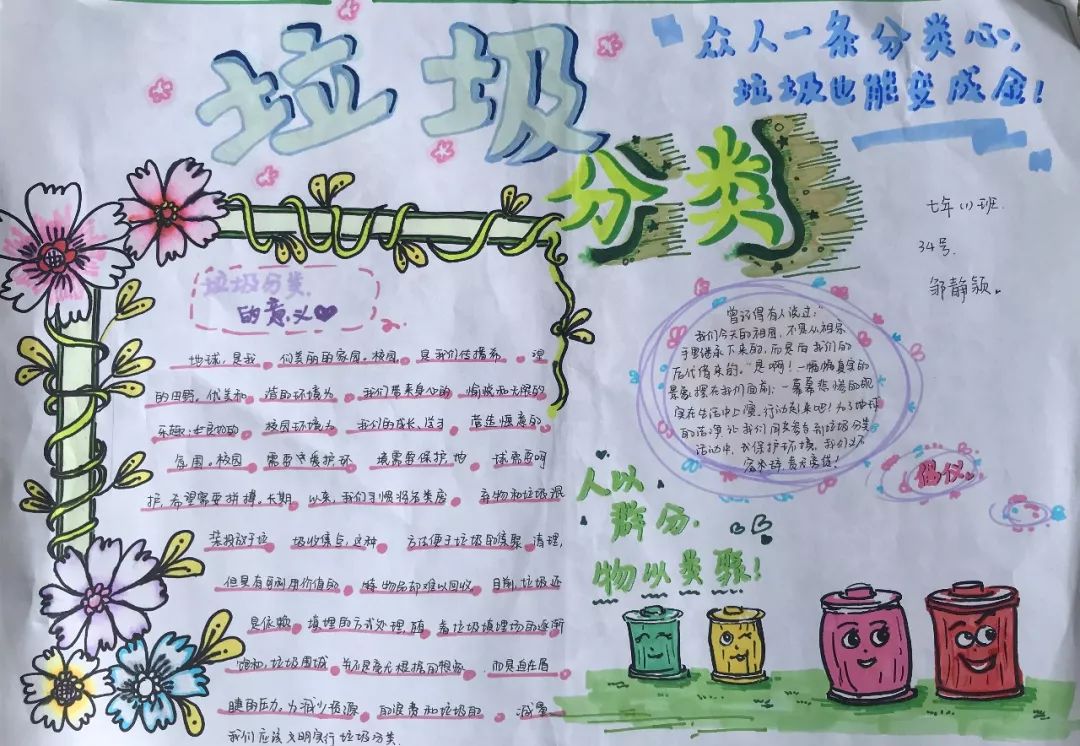 垃圾
分类
众人一条分类心，
垃圾也能变成金！
七年(1)班.
34号.
邹静颖。
垃圾分类
的意义
地球，是我 们美丽的家园。校园， 是我们传播希 望
的田野。优美和 谐的环境为 我们带来身心的 愉被和无限的
乐趣;也良切的 校园环境为 我们的成长、学习 营造惬意的
氛围。校园 需要关爱护环 境需要保护,地 球需要呵
护,希望需要拼搏。长期 以来,我们习惯将各类废 弃物和垃圾混
装投放于垃 圾收集点,这种 方法便于垃圾的集聚、清理,
但具有再利用价值的 物品却难以回收。目前,垃圾还
是依赖 填埋的方式处理,随 着垃圾填埋场的逐渐
饱和,垃圾围城 并不是毫无根据的想象, 而是迫在眉
睫的压力。为减少资源 的浪费和垃圾的 减量
我们应该文明实行垃圾分类.
曾记得有人谈过:"
我们今天的祖国,不是从祖宗
手里继承下来的,而是向我们的
后代借来的。"是啊!一幅幅真实的
景象摆在我们面前,一幕幕悲惨的现
实在生活中上演。行动起来吧!为了地球
的活泼,让我们同来参与到垃圾分类
活动中,我保护环境,我们义不
容辞,责无旁贷!
倡仪。
人以
群分.
物以类聚!